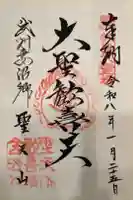 奉納
令和八年一月二十五日
大聖歓喜天
武州妻沼郷
聖天山